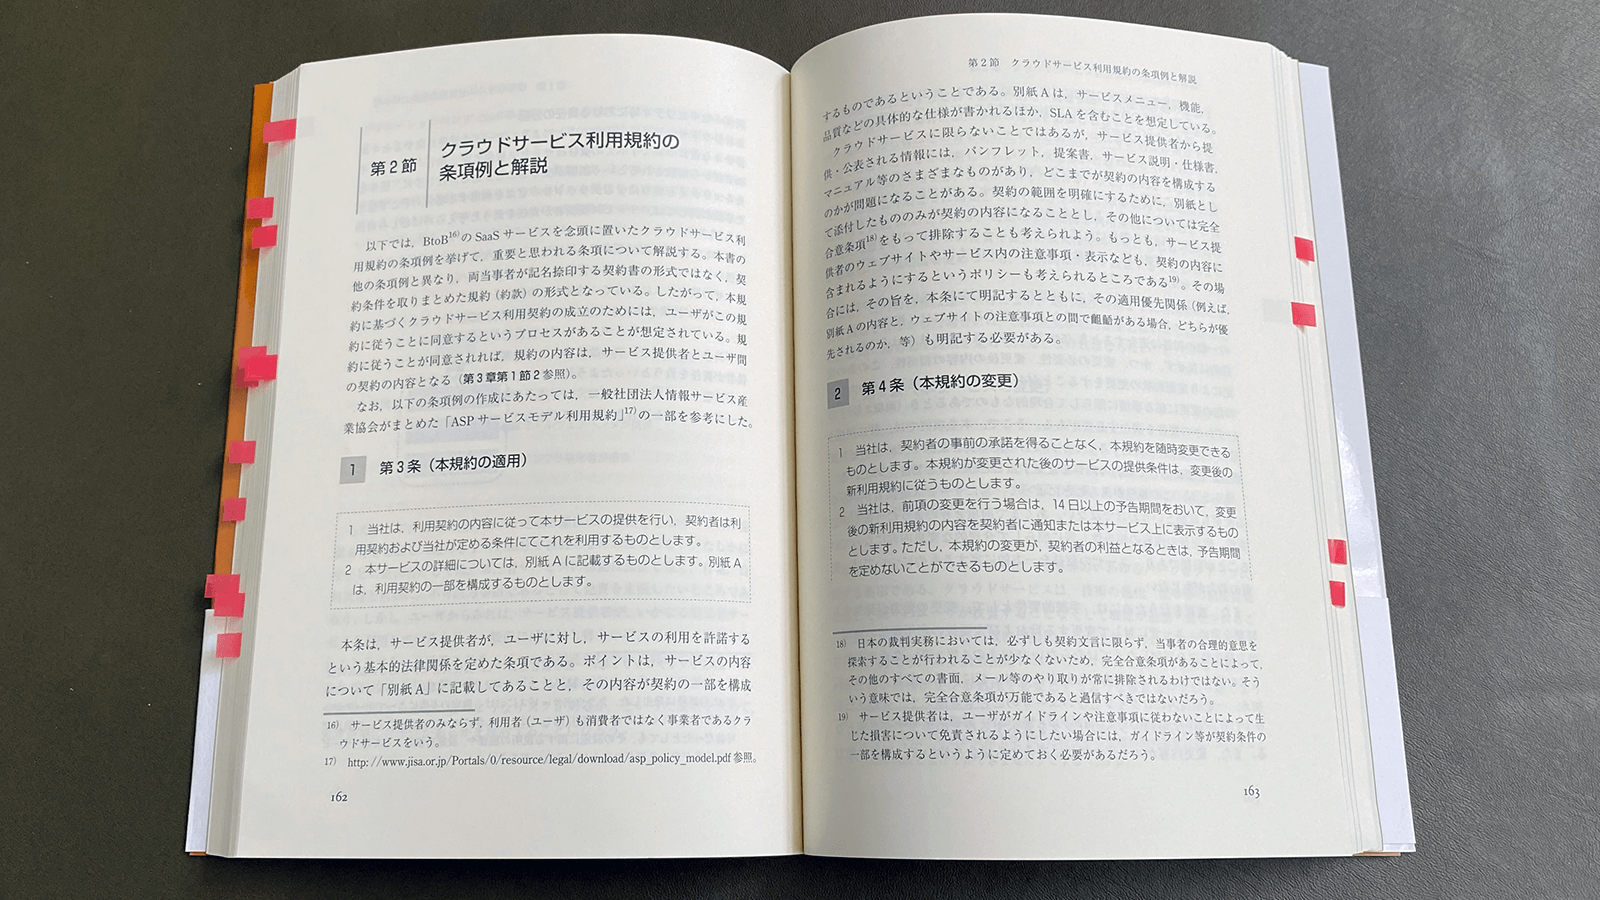 第2節
クラウドサービス利用規約の
条項例と解説
以下では，BtoB16)のSaaSサービスを念頭に置いたクラウドサービス利
用規約の条項例を挙げて，重要と思われる条項について解説する。本書の
他の条項例と異なり，両当事者が記名捺印する契約書の形式ではなく，契
約条件を取りまとめた規約（約款）の形式となっている。したがって，本規
約に基づくクラウドサービス利用契約の成立のためには，ユーザがこの規
約に従うことに同意するというプロセスがあることが想定されている。規
約に従うことが同意されれば，規約の内容は，サービス提供者とユーザ間
の契約の内容となる（第3章第1節2参照）。
なお，以下の条項例の作成にあたっては，一般社団法人情報サービス産
業協会がまとめた「ASPサービスモデル利用規約」17)の一部を参考にした。
1 第3条（本規約の適用）
1 当社は，利用契約の内容に従って本サービスの提供を行い，契約者は利
用契約および当社が定める条件にてこれを利用するものとします。
2 本サービスの詳細については，別紙Aに記載するものとします。別紙A
は，利用契約の一部を構成するものとします。
本条は，サービス提供者が，ユーザに対し，サービスの利用を許諾する
という基本的法律関係を定めた条項である。ポイントは，サービスの内容
について「別紙A」に記載してあることと，その内容が契約の一部を構成
16) サービス提供者のみならず，利用者（ユーザ）も消費者ではなく事業者であるクラ
ウドサービスをいう。
17) http://www.jisa.or.jp/Portals/0/resource/legal/download/asp_policy_model.pdf参照。
162
第2節 クラウドサービス利用規約の条項例と解説
するものであるということである。別紙Aは，サービスメニュー，機能，
品質などの具体的な仕様が書かれるほか，SLAを含むことを想定している。
クラウドサービスに限らないことではあるが，サービス提供者から提
供・公表される情報には，パンフレット，提案書，サービス説明・仕様書，
マニュアル等のさまざまなものがあり，どこまでが契約の内容を構成する
のかが問題になることがある。契約の範囲を明確にするために，別紙とし
て添付したもののみが契約の内容になることとし，その他については完全
合意条項18)をもって排除することも考えられよう。もっとも，サービス提
供者のウェブサイトやサービス内の注意事項・表示なども，契約の内容に
含まれるようにするというポリシーも考えられるところである19)。その場
合には，その旨を，本条にて明記するとともに，その適用優先関係（例えば，
別紙Aの内容と，ウェブサイトの注意事項との間で齟齬がある場合，どちらが優
先されるのか，等）も明記する必要がある。
2 第4条（本規約の変更）
1 当社は，契約者の事前の承諾を得ることなく，本規約を随時変更できる
ものとします。本規約が変更された後のサービスの提供条件は，変更後の
新利用規約に従うものとします。
2 当社は，前項の変更を行う場合は，14日以上の予告期間をおいて，変更
後の新利用規約の内容を契約者に通知または本サービス上に表示するもの
とします。ただし，本規約の変更が，契約者の利益となるときは，予告期間
を定めないことができるものとします。
18) 日本の裁判実務においては，必ずしも契約文言に限らず，当事者の合理的意思を
探索することが行われることが少なくないため，完全合意条項があることによって，
その他のすべての書面，メール等のやり取りが常に排除されるわけではない。そう
いう意味では，完全合意条項が万能であると過信すべきではないだろう。
19) サービス提供者は，ユーザがガイドラインや注意事項に従わないことによって生
じた損害について免責されるようにしたい場合には，ガイドライン等が契約条件の
一部を構成するというように定めておく必要があるだろう。
163